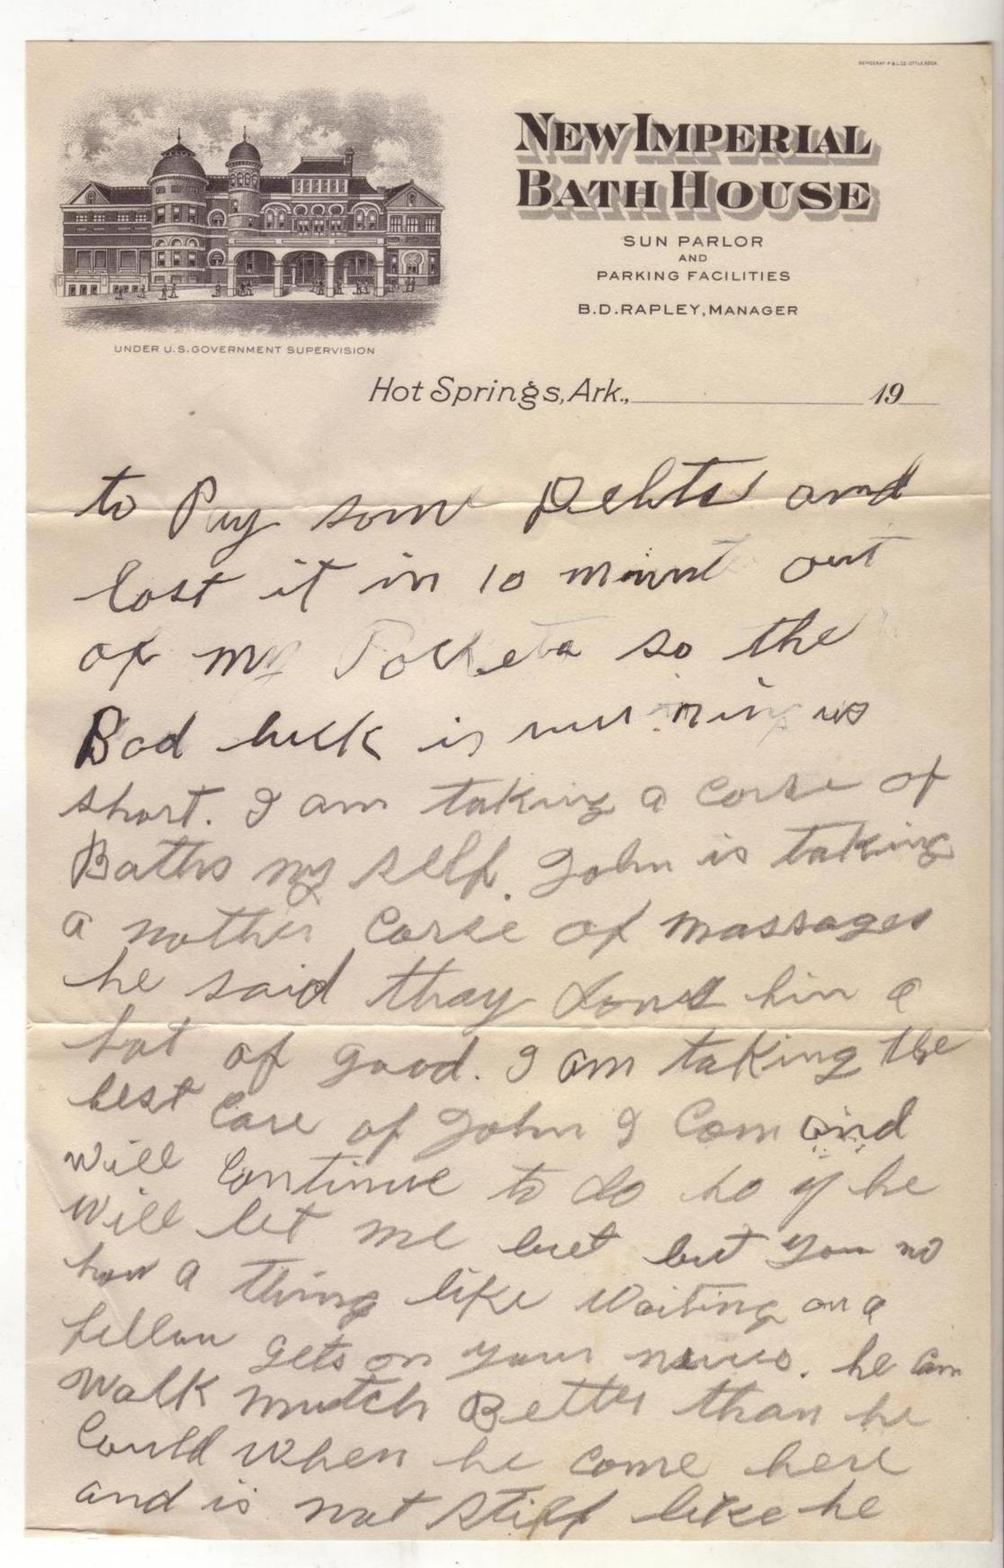 NEW IMPERIAL
BATH HOUSE
SUN PARLOR
AND
PARKING FACILITIES
B.D. RAPLEY, MANAGER
UNDER U.S. GOVERNMENT SUPERVISION
Hot Springs, Ark., 19
to Pay som Debts and
lost it in 10 minut out
of my Pockets so the
Bad luck is running us
short. I am taking a Corse of
Baths my self. John is taking
a nother Corse of massages
he said thay dons him a
hot of good. I am taking the
best Care of John I Com and
will Continue to do so if he
will let me but but you no
how a thing like Waiting on a
fellow gets on your nerves. he Can
Walk mutch Better than he
Could When he Come here
and is not Stiff like he